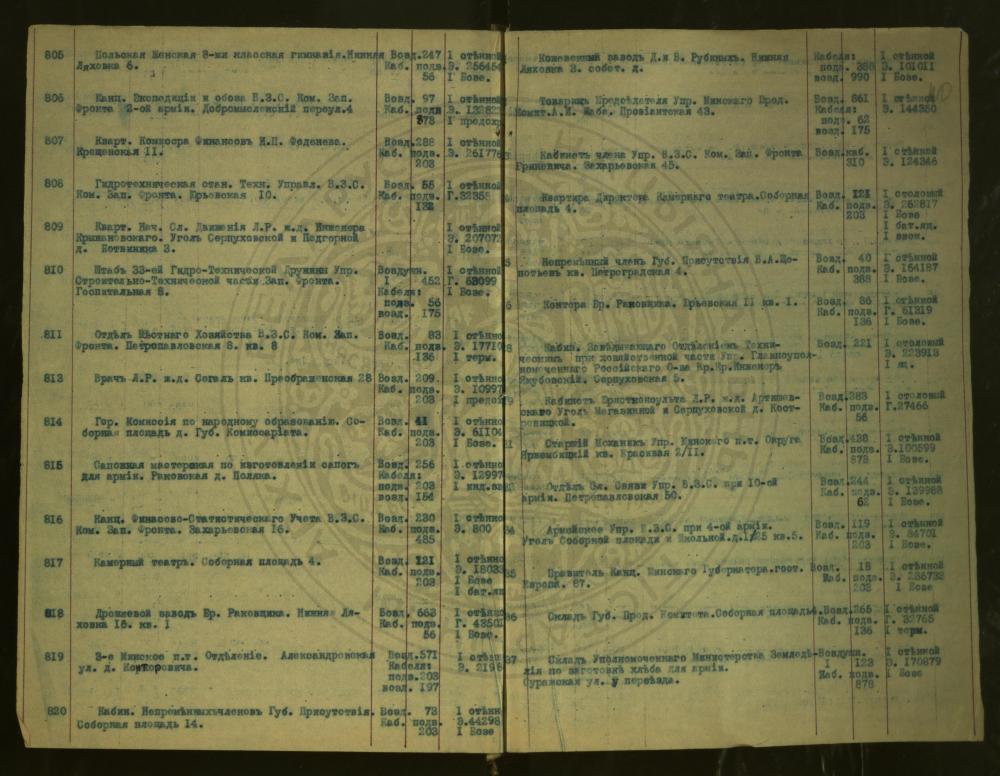 805 Польская Женская 8-ми классная гимназія. Нижняя Возд. 247 I стѣнной
Ляховка 6. Каб. подв. Э. 256454
56 I Бозе.
806 Канц. Экспедиціи и обоза В.З.С. Ком. Зап. Возд. 97 I стѣнной
Фронта 2-ой арміи. Добромысленскій переул.4 Каб. подв
878 I предохр
807 Кварт. Комисора Финансовъ И.П. Феденева. Возд.288 I стѣнной
Крещенская II. Каб. подв. Э. 261776
203
808 Гидротехническая стан. Техн. Управл. В.З.С. Возд. 55 I стѣнной
Ком. Зап. Фронта. Юрьевская 10. Каб. подв. Г.3235
132
809 Кварт. Нач. Сл. Движенія Л.Р. ж.д. Инженера I стѣнной
Крыжановскаго. Уголъ Серпуховской и Подгорной Э. 207072
д. Вотвиника 3. I Бозе.
810 Штабъ 33-ей Гидро-Технической Дружины Упр. Воздушн. I стѣнной
Строительно-Технической части Зап. Фронта. I 452 Г. 63099
Госпитальная 8. Кабеля: I Бозе.
подв. 56
возд. 175
811 Отдѣлъ Мѣстнаго Хозяйства В.З.С. Ком. Зап. Возд. 83 I стѣнно
Фронта. Петропавловская 8. кв. 8 Каб. подв. Э. 17710
136 I терм.
813 Врачъ Л.Р. ж.д. Сегалъ кв. Преображенская 28 Возд. 209. I стѣнно
Каб. подв. Э. 10997
203 I предох
814 Гор. Комиссія по народному образованію. Со- Возд. 41 I стѣнно
борная площадь д. Губ. Комиссаріата. Каб. подв. Э. 61104
203 I Бозе.
815 Сапожная мастерская по изготовленіи сапогъ Возд. 256 I стѣнно
для арміи. Раковская д. Поляка. Кабеля: Э. 12997
подв. 203 I инд.
возд. 154
816 Канц. Финансово-Статистическаго Учета В.З.С. Возд. 230 I стѣнно
Ком. Зап. Фронта. Захарьевская 16. Каб. подв. Э. 800
485
817 Камерный театръ. Соборная площадь 4. Возд. 121 I стѣнно
Каб. подв. Э. 18033
203 I Бозе
I бат.ящ
818 Дрожжевой заводъ Бр. Раковщика. Нижняя Ля- Возд. 663 I стѣнно
ховка 16. кв. I Каб. подв. Г. 43502
56 I Бозе.
819 3-е Минское п.т. Отдѣленіе. Александровская Возд.571 I стѣн
ул. д. Конторовича. Кабеля: Э. 2198
подв.203
возд. 197
820 Кабин. Непремѣнныхъ членовъ Губ. Присутствія. Возд. 73 I стѣнн
Соборная площадь 14. Каб. подв. Э.44298
203 I Бозе
Кожевенный заводъ Д.и Б. Рубиныхъ. Нижняя Кабеля: I стѣнной
Ляховка 3. собст. д. подв. 388 Э. 101011
возд. 990 I Бозе.
Товарищъ Предсѣдателя Упр. Минскаго Прод. Возд. 661 I стѣнной
Комит.А.И. Жаба. Провіантская 43. Кабеля: Э. 144350
подв. 62
возд. 175
Кабинетъ члена Упр. В.З.С. Ком. Зап. Фронта Возд.каб. I стѣнной
Гриневича. Захарьевская 45. 310 Э. 124346
Квартира Директора Камернаго театра.Соборная Возд. 121 I столовый
площадь 4. Каб. подв. Э. 252817
203 I Бозе
I бат.ящ.
I звон.
5 Непремѣнный членъ Губ. Присутствія В.А.Що- Возд. 40 I стѣнной
потьевъ кв. Петроградская 4. Каб. подв. Э. 164187
388 I Бозе.
6 Контора Бр. Раковщика. Юрьевская II кв. I. Возд. 86 I стѣнной
Каб. подв. Г. 61319
136 I Бозе.
8 Кабин. Завѣдывающаго Отдѣленіемъ Техни- Возд. 221 I столовый
ческимъ при хозяйственной части Упр. Главноупол- Э. 223913
номоченнаго Россійскаго О-ва Кр.Кр.Инженеръ I ящ.
Якубовскій. Серпуховская 5.
9 Кабинетъ Юристконсульта Л.Р. ж.д. Артишев- Возд.383 I столовый
скаго Уголъ Магазинной и Серпуховской д. Кост- Каб. подв. Г.27466
ровицкой. 56
31 Старшій Механикъ Упр. Минскаго п.т. Округа Возд.438 I стѣнной
Яржембицкій кв. Красивая 2/II. Каб. подв. Э.100599
878 I Бозе.
33 Отдѣлъ Эл. Связи Упр. В.З.С. при 10-ой Возд.244 I стѣнной
арміи. Петропавловская 50. Каб. подв. Э. 139988
62 I Бозе.
34 Армейское Упр. В.З.С. при 4-ой арміи. Возд. 119 I стѣнной
Уголъ Соборной площади и Школьной.д.1/25 кв.5. Каб. подв. Э. 84701
203 I Бозе.
35 Правитель Канц. Минскаго Губернатора.гост. Возд. 18 I стѣнной
Европа. 87. Каб. подв. Э. 236733
203 I Бозе
36 Складъ Губ. Прод. Комитета.Соборная площадь4. Возд.265 I стѣнной
Каб. подв. Г. 32765
136 I терм.
37 Складъ Уполномоченнаго Министерства Земледѣ- Воздушн. I стѣнной
лія по заготовкѣ хлѣба для арміи. I 123 Э. 170879
Суражская ул. у переѣзда. Каб. подв. I Бозе
878